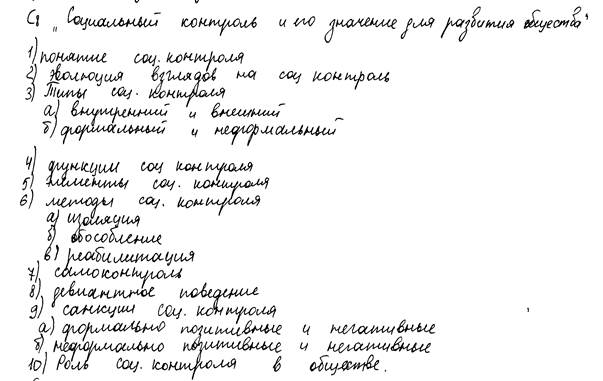 С8 „Социальный контроль и его значение для развития общества"
1) понятие соц. контроля
2) эволюция взглядов на соц контроль
3) Типы соц. контроля
а) внутренний и внешний
б) формальный и неформальный
4) функции соц контроля
5) элементы соц. контроля
6) методы соц. контроля
а) изоляция
б) обособление
в) реабилитация
7) самоконтроль
8) девиантное поведение
9) санкции соц. контроля
а) формально позитивные и негативные
б) неформально позитивные и негативные
10) Роль соц. контроля в обществе.